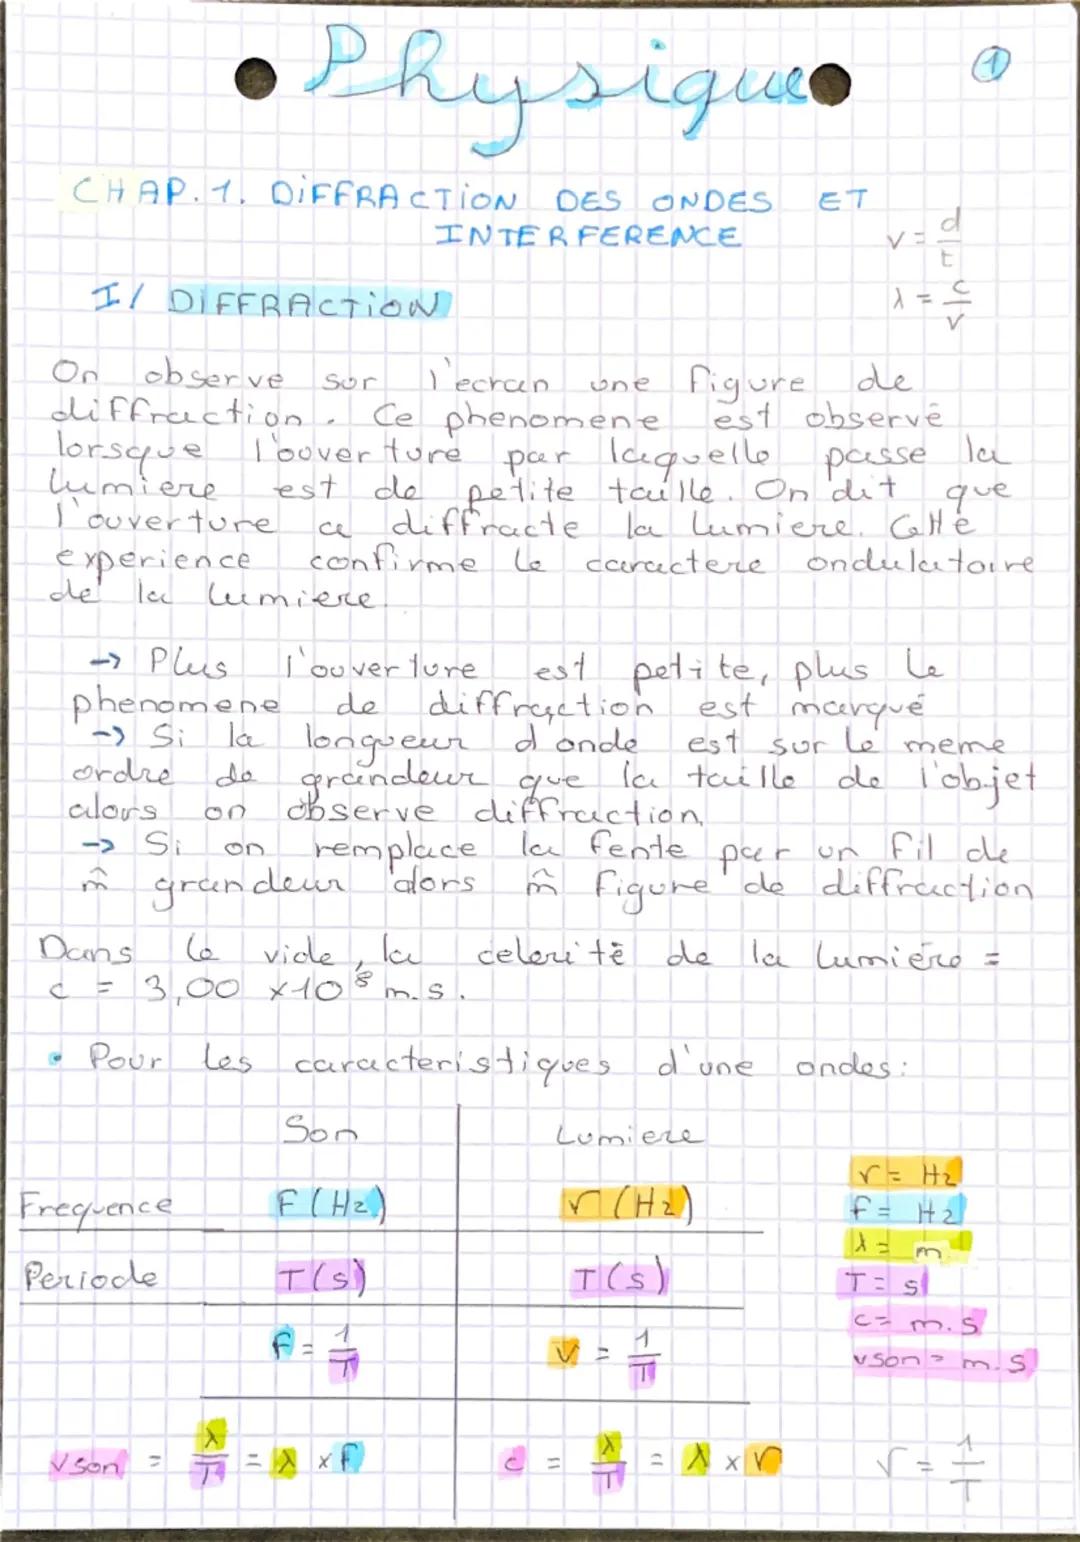 Physique
①
CHAP.1. DIFFRACTION DES ONDES ET
INTERFERENCE
v = d/t
λ = c/ν
I/ DIFFRACTION
On observe sur l'ecran une figure de
diffraction. Ce phenomene est observé
lorsque l'ouverture par laquelle passe la
lumiere est de petite taille. On dit que
l'ouverture a diffracte la lumiere. Cette
experience confirme le caractere ondulatoire
de la lumiere.
-> Plus l'ouverture est petite, plus le
phenomene de diffraction est marqué
-> Si la longueur d'onde est sur le meme
ordre de grandeur que la taille de l'objet
alors on observe diffraction.
-> Si on remplace la fente par un fil de
m̂ grandeur alors m̂ figure de diffraction
Dans le vide, la celerité de la lumiére =
c = 3,00 x10⁸ m.s.
• Pour les caracteristiques d'une ondes:
Son Lumiere
ν = Hz
Frequence F (Hz) ν (Hz)
f = Hz
λ = m
Periode T(s) T(s)
T = s
c = m.s
f = 1/T ν = 1/T
vson = m.s
vson = λ/T = λ x f c = λ/T = λ x ν
ν = 1/T